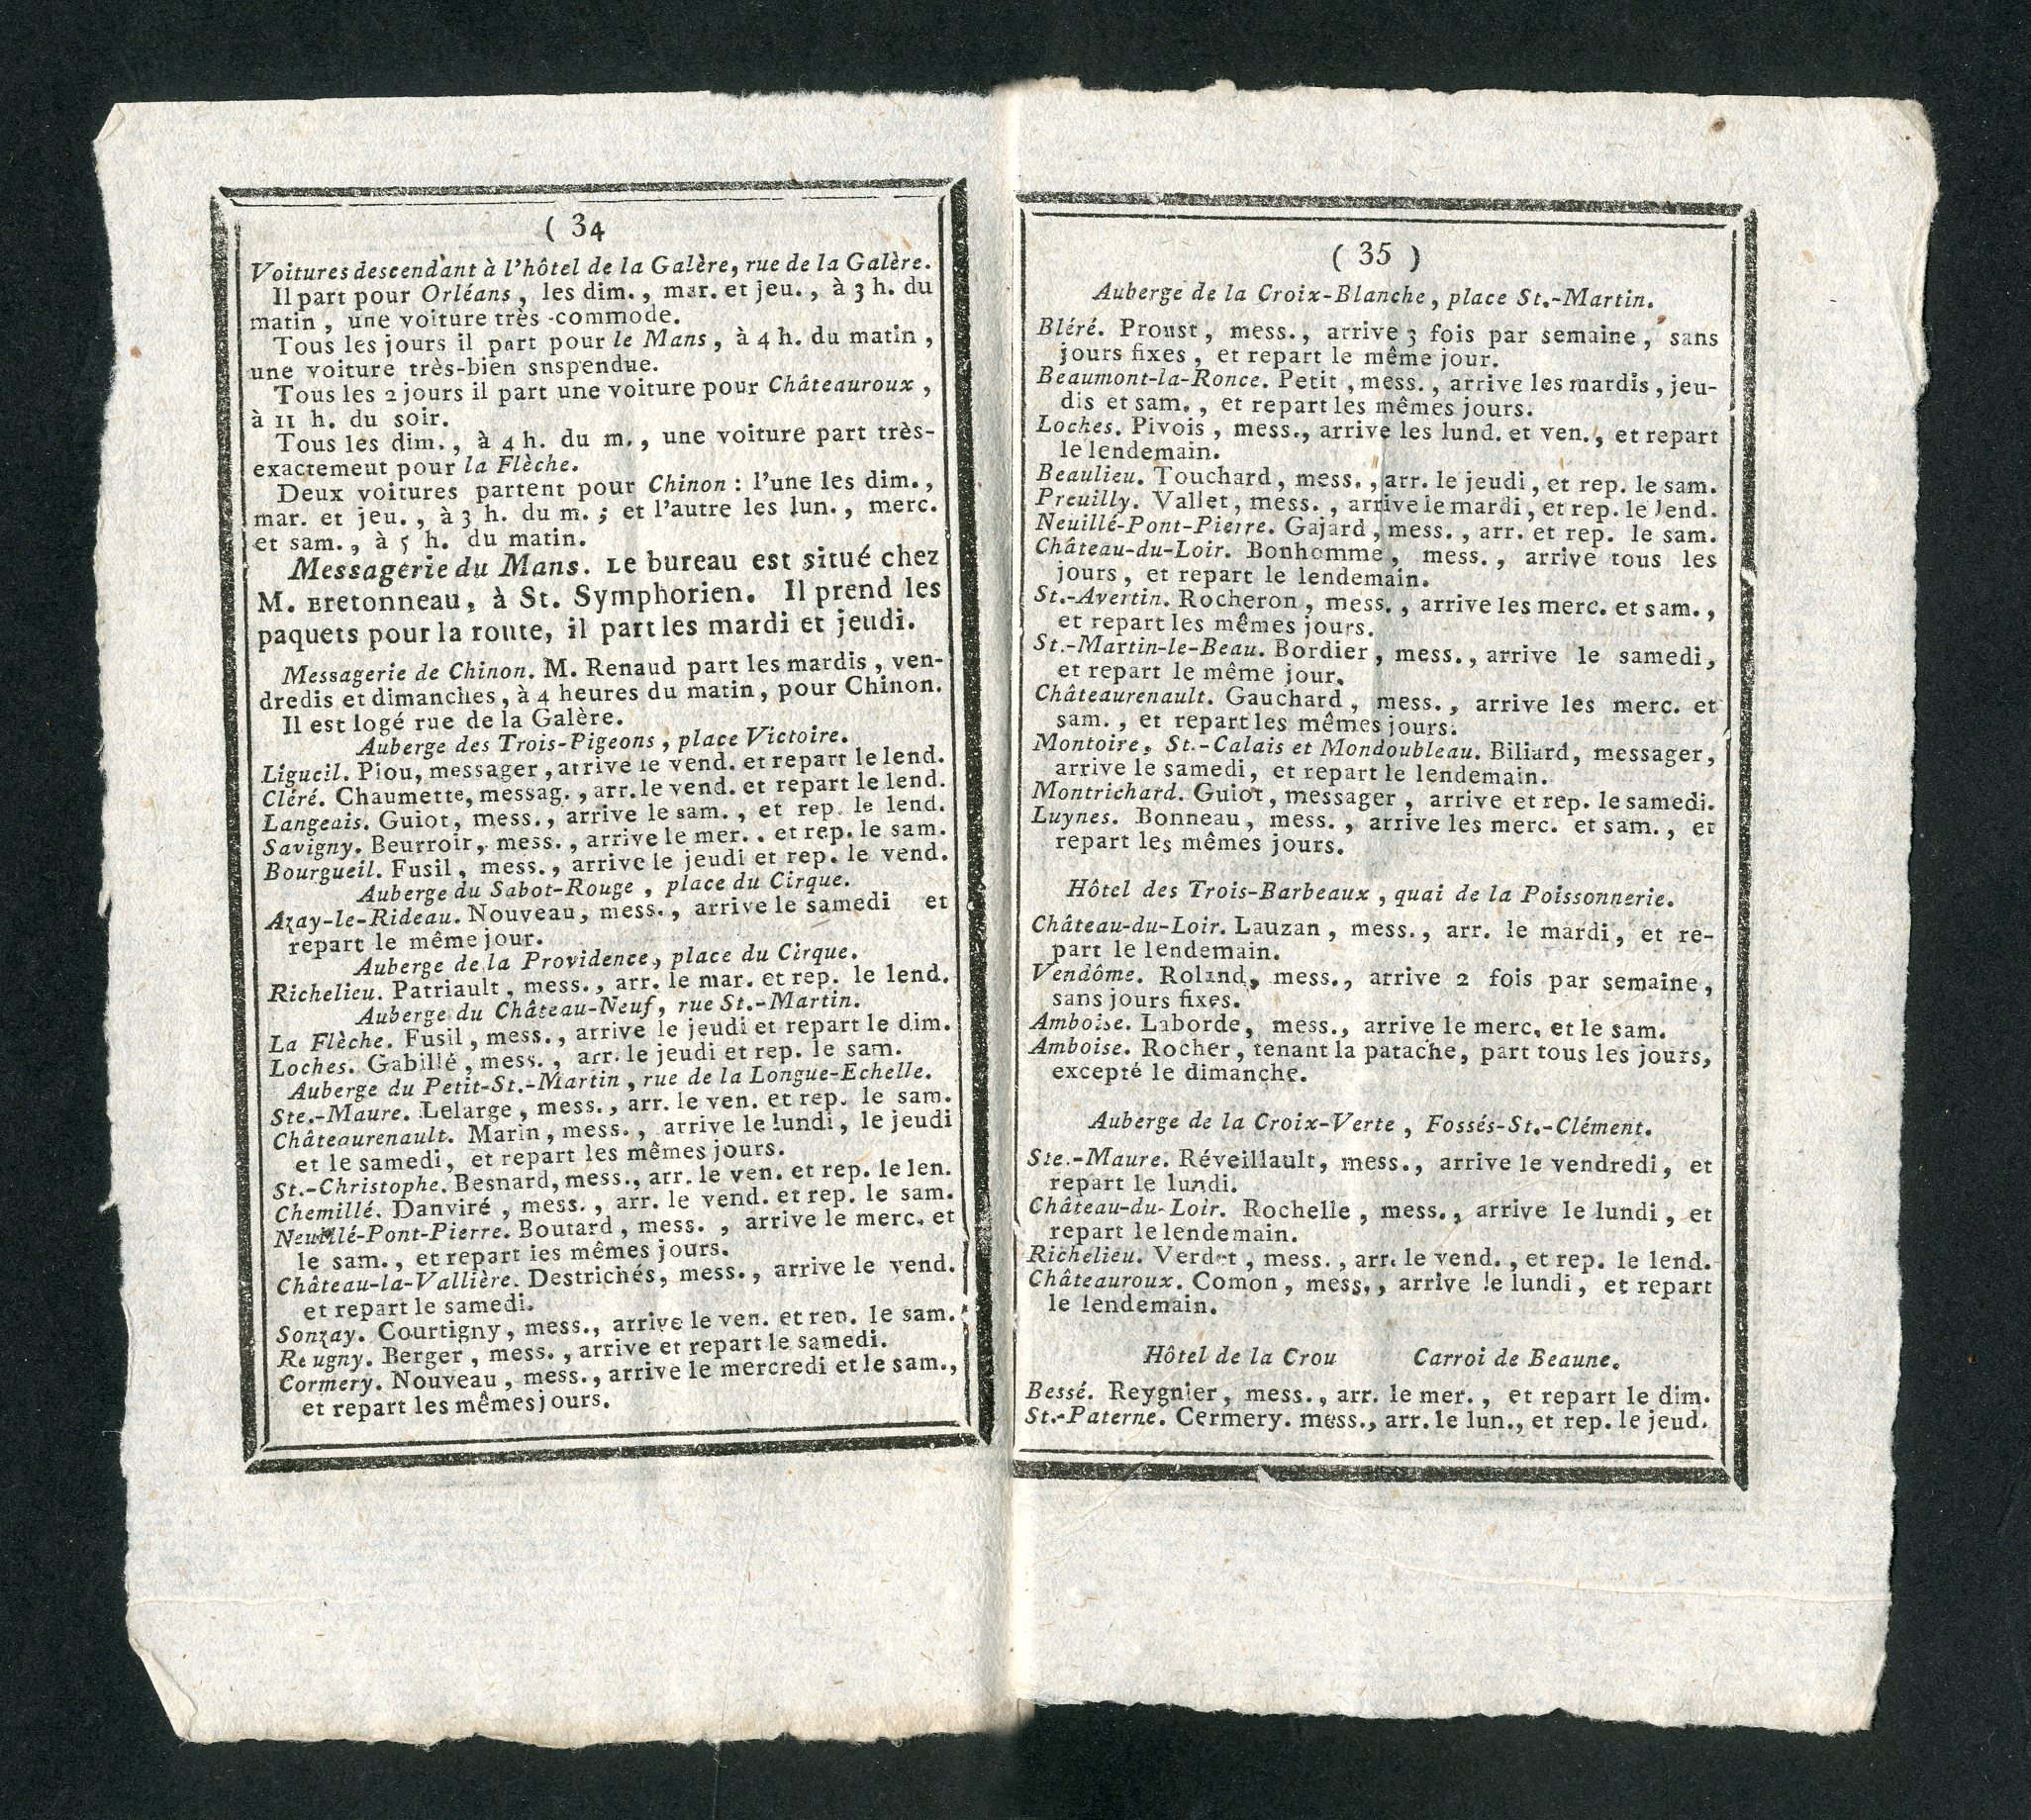 ( 34
Voitures descendant à l'hôtel de la Galère, rue de la Galère.
Il part pour Orléans, les dim., mar. et jeu., à 3 h. du
matin, une voiture très-commode.
Tous les jours il part pour le Mans, à 4 h. du matin,
une voiture très-bien snspendue.
Tous les 2 jours il part une voiture pour Châteauroux,
à 11 h. du soir.
Tous les dim., à 4 h. du m., une voiture part très-
exactemeut pour la Flèche.
Deux voitures partent pour Chinon : l'une les dim.,
mar. et jeu., à 3 h. du m. ; et l'autre les lun., merc.
et sam., à 5 h. du matin.
Messagerie du Mans. Le bureau est situé chez
M. Bretonneau, à St. Symphorien. Il prend les
paquets pour la route, il part les mardi et jeudi.
Messagerie de Chinon. M. Renaud part les mardis, ven-
dredis et dimanches, à 4 heures du matin, pour Chinon.
Il est logé rue de la Galère.
Auberge des Trois-Pigeons, place Victoire.
Ligueil. Piou, messager, arrive le vend. et repart le lend.
Cléré. Chaumette, messag., arr. le vend. et repart le lend.
Langeais. Guiot, mess., arrive le sam., et rep. le lend.
Savigny. Beurroir, mess., arrive le mer.. et rep. le sam.
Bourgueil. Fusil, mess., arrive le jeudi et rep. le vend.
Auberge du Sabot-Rouge, place du Cirque.
Azay-le-Rideau. Nouveau, mess., arrive le samedi et
repart le même jour.
Auberge de la Providence, place du Cirque.
Richelieu. Patriault, mess., arr. le mar. et rep. le lend.
Auberge du Château-Neuf, rue St.-Martin.
La Flèche. Fusil, mess., arrive le jeudi et repart le dim.
Loches. Gabillé, mess., arr. le jeudi et rep. le sam.
Auberge du Petit-St.-Martin, rue de la Longue-Echelle.
Ste.-Maure. Lelarge, mess., arr. le ven. et rep. le sam.
Châteaurenault. Marin, mess., arrive le lundi, le jeudi
et le samedi, et repart les mêmes jours.
St.-Christophe. Besnard, mess., arr. le ven. et rep. le len.
Chemillé. Danviré, mess., arr. le vend. et rep. le sam.
Neuillé-Pont-Pierre. Boutard, mess., arrive le merc. et
le sam., et repart les mêmes jours.
Château-la-Vallière. Destrichés, mess., arrive le vend.
et repart le samedi.
Sonzay. Courtigny, mess., arrive le ven. et rep. le sam.
Reugny. Berger, mess., arrive et repart le samedi.
Cormery. Nouveau, mess., arrive le mercredi et le sam.,
et repart les mêmes jours.
( 35 )
Auberge de la Croix-Blanche, place St.-Martin.
Bléré. Proust, mess., arrive 3 fois par semaine, sans
jours fixes, et repart le même jour.
Beaumont-la-Ronce. Petit, mess., arrive les mardis, jeu-
dis et sam., et repart les mêmes jours.
Loches. Pivois, mess., arrive les lund. et ven., et repart
le lendemain.
Beaulieu. Touchard, mess., arr. le jeudi, et rep. le sam.
Preuilly. Vallet, mess., arrive le mardi, et rep. le lend.
Neuillé-Pont-Pierre. Gajard, mess., arr. et rep. le sam.
Château-du-Loir. Bonhomme, mess., arrive tous les
jours, et repart le lendemain.
St.-Avertin. Rocheron, mess., arrive les merc. et sam.,
et repart les mêmes jours.
St.-Martin-le-Beau. Bordier, mess., arrive le samedi,
et repart le même jour.
Châteaurenault. Gauchard, mess., arrive les merc. et
sam., et repart les mêmes jours.
Montoire, St.-Calais et Mondoubleau. Biliard, messager,
arrive le samedi, et repart le lendemain.
Montrichard. Guiot, messager, arrive et rep. le samedi.
Luynes. Bonneau, mess., arrive les merc. et sam., et
repart les mêmes jours.
Hôtel des Trois-Barbeaux, quai de la Poissonnerie.
Château-du-Loir. Lauzan, mess., arr. le mardi, et re-
part le lendemain.
Vendôme. Roland, mess., arrive 2 fois par semaine,
sans jours fixes.
Amboise. Laborde, mess., arrive le merc. et le sam.
Amboise. Rocher, tenant la patache, part tous les jours,
excepté le dimanche.
Auberge de la Croix-Verte, Fossés-St.-Clément.
Ste.-Maure. Réveillault, mess., arrive le vendredi, et
repart le lundi.
Château-du-Loir. Rochelle, mess., arrive le lundi, et
repart le lendemain.
Richelieu. Verdet, mess., arr. le vend., et rep. le lend.
Châteauroux. Comon, mess., arrive le lundi, et repart
le lendemain.
Hôtel de la Crou Carroi de Beaune.
Bessé. Reygnier, mess., arr. le mer., et repart le dim.
St.-Paterne. Cermery. mess., arr. le lun., et rep. le jeud.